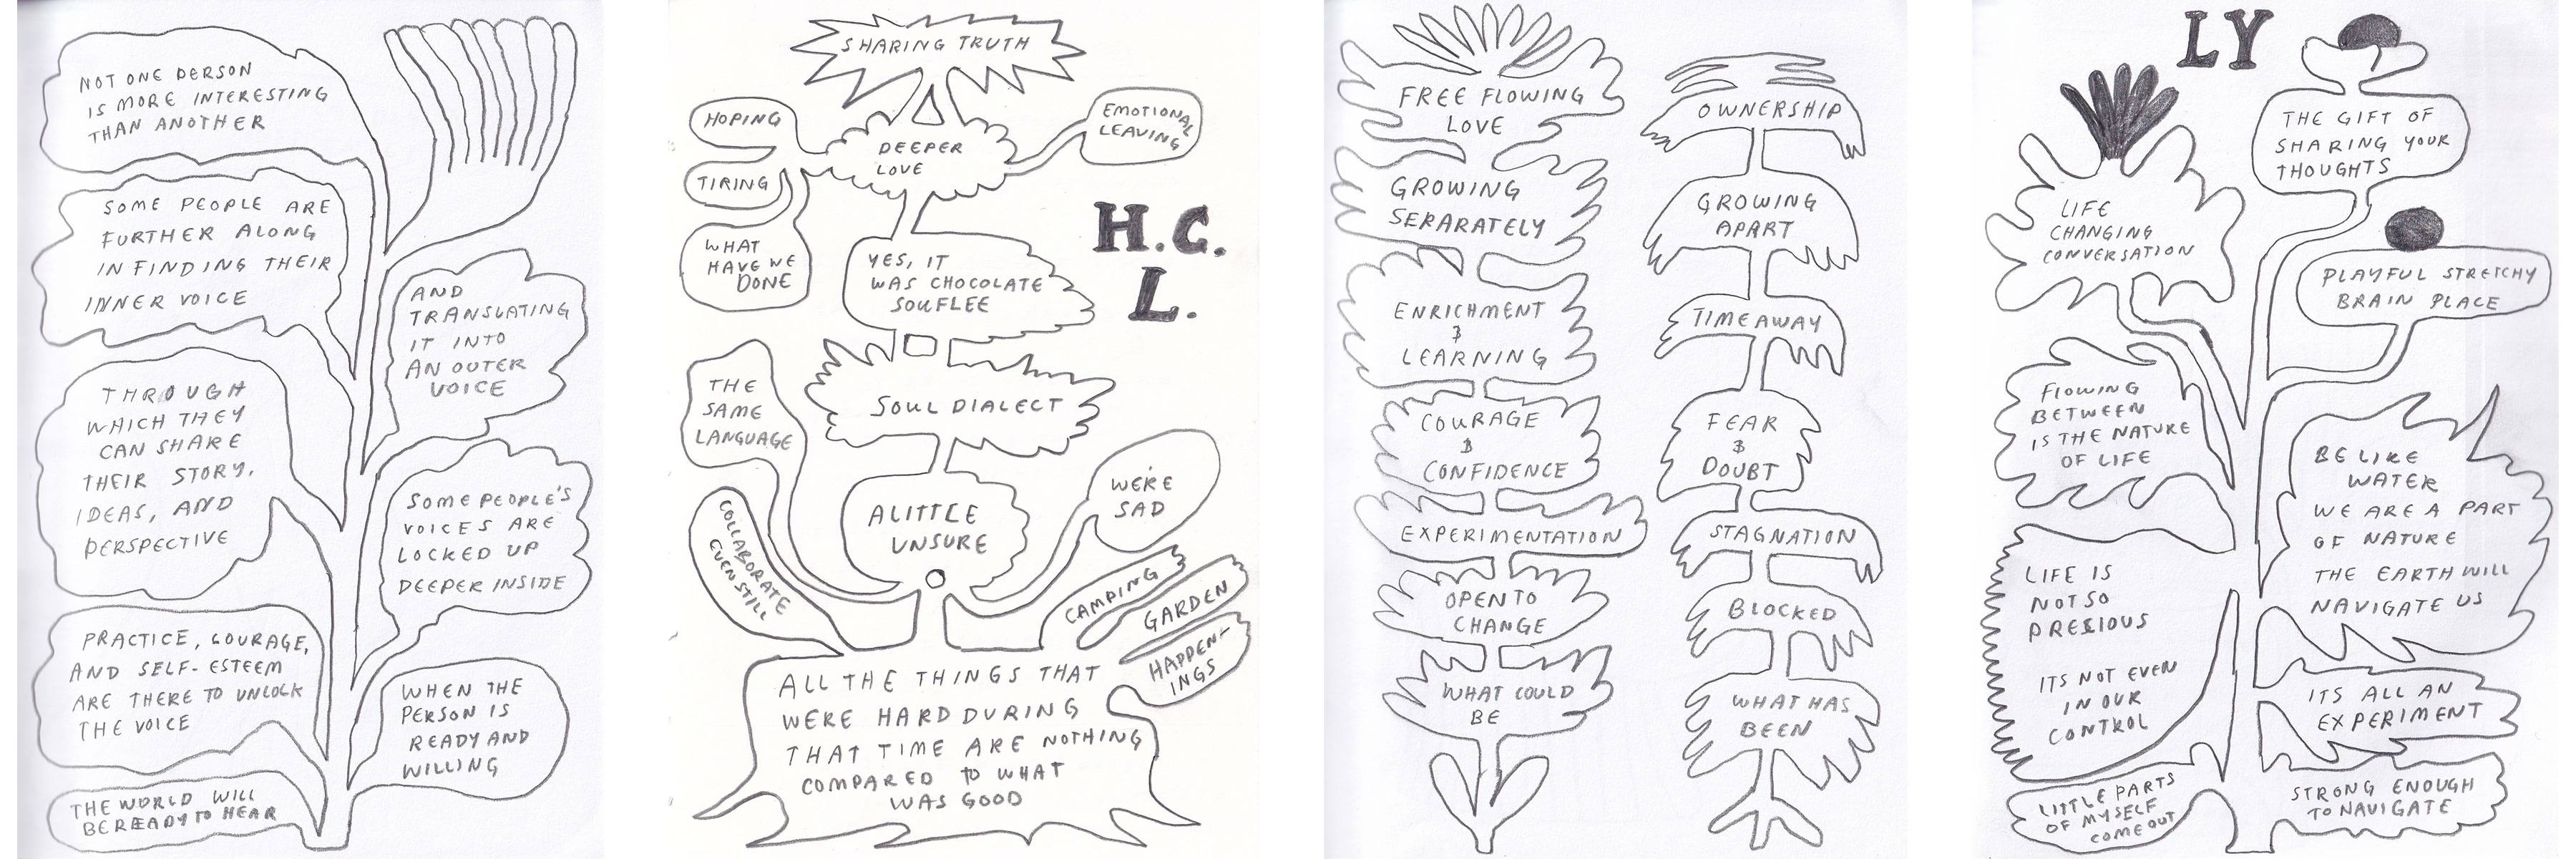 NOT ONE PERSON
IS MORE INTERESTING
THAN ANOTHER
SOME PEOPLE ARE
FURTHER ALONG
IN FINDING THEIR
INNER VOICE
AND
TRANSLATING
IT INTO
AN OUTER
VOICE
THROUGH
WHICH THEY
CAN SHARE
THEIR STORY,
IDEAS, AND
PERSPECTIVE
SOME PEOPLE'S
VOICES ARE
LOCKED UP
DEEPER INSIDE
PRACTICE, COURAGE,
AND SELF-ESTEEM
ARE THERE TO UNLOCK
THE VOICE
WHEN THE
PERSON IS
READY AND
WILLING
THE WORLD WILL
BE READY TO HEAR
SHARING TRUTH
HOPING
TIRING
WHAT
HAVE WE
DONE
DEEPER
LOVE
EMOTIONAL
LEAVING
H.C.
L.
YES, IT
WAS CHOCOLATE
SOUFLEE
SOUL DIALECT
THE
SAME
LANGUAGE
A LITTLE
UNSURE
WE'RE
SAD
COLLABORATE
EVEN STILL
CAMPING
GARDEN
HAPPEN-
INGS
ALL THE THINGS THAT
WERE HARD DURING
THAT TIME ARE NOTHING
COMPARED TO WHAT
WAS GOOD
FREE FLOWING
LOVE
GROWING
SERARATELY
ENRICHMENT
&
LEARNING
COURAGE
&
CONFIDENCE
EXPERIMENTATION
OPEN TO
CHANGE
WHAT COULD
BE
OWNERSHIP
GROWING
APART
TIME AWAY
FEAR
&
DOUBT
STAGNATION
BLOCKED
WHAT HAS
BEEN
LY
THE GIFT OF
SHARING YOUR
THOUGHTS
LIFE
CHANGING
CONVERSATION
PLAYFUL STRETCHY
BRAIN PLACE
FLOWING
BETWEEN
IS THE NATURE
OF LIFE
BE LIKE
WATER
WE ARE A PART
OF NATURE
THE EARTH WILL
NAVIGATE US
LIFE IS
NOT SO
PRECIOUS
ITS NOT EVEN
IN OUR
CONTROL
ITS ALL AN
EXPERIMENT
LITTLE PARTS
OF MYSELF
COME OUT
STRONG ENOUGH
TO NAVIGATE